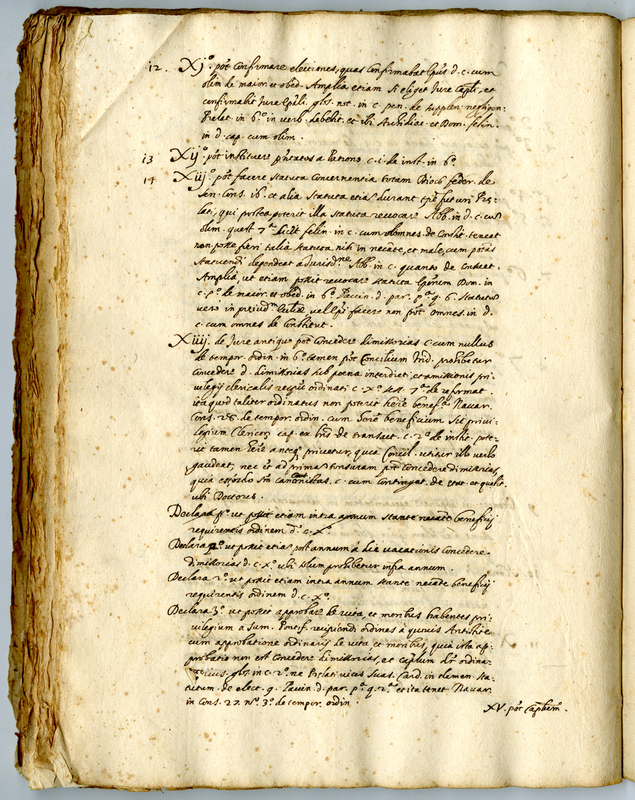 12. XJ.º pót confirmare electiones, quas confirmabat Epus d. c. cum
olim de maior. et obed. Amplia etiam si eliget Jure Capli, et
confirmabit Jure Epali. glos. not. in c. pen. de supplen. negligen.
Prelat. in 6.º in verb. debebit. et ibi Archidiac. et Dom. felin.
in d. cap. cum olim.
13 Xij.º pót instituere pñtatos a Patrono. c. i. de inst. in 6.º
14 Xiij.º pót facere statuta concernentia totam
sen. Cons. 16. et alia statuta etiã durant tpre futuri Pre-
lati, qui postea poterit illa statuta revocare Abb. in d. c. cum
olim. quest. 7.ª licet felin. in c. cum omnes. de Const. teneat
non posse fieri talia statuta nisi in necate, et male, cum potas
statuendi dependeat a Jurisdne. Abb. in c. quanto de
Amplia, ut etiam possit revocare statuta Epõrum Dom. in
c. p.º de maior. et obed. in 6.º Pavin. d. par. pª q. 6. statuta
vero in preiudm Eccliæ vel Epi facere non pót omnes. in d.
c. cum omnes de Constitut.
Xiiij. de Jure antiquo pót concedere dimissorias c. cum nullus
de tempor. ordin. in 6.º tamen pót Concilium Trid. prohibetur
concedere d. dimissorias sub poena interdicti, et amissionis pri-
vilegij clericalis respu ordinati c. X.º sess. 7.ª de reformat.
ita quod taliter ordinatus non poterit hère benefm Navar.
Cons. 28. de tempor. ordin. cum Jere beneficium sit privi-
legium Clericor. cap. ex his de transact. c. 2.º de inst. pote-
rit tamen hère antequã privetur, quia Concil. utitur illo verbo
gaudeat, nec et ad primam tonsuram pót concedere dimissorias,
quia est ordo sm canonistas. c. cum contingat. de ætat. et qualit.
ubi Doctores.
Declara pº. ut possit etiam intra annum stante necate beneficij
requirentis ordinem d. c. X.º
Declara 2º. ut possit etiã post annum a die vacationis concedere
dimissorias d. c. X.º ubi solum prohibetur infra annum.
Declara 2º. ut possit etiam intra annum stante necate beneficij
requirentis ordinem d. c. X.º
Declara 3º. ut possit approbare de vita, et moribus habentes pri-
vilegium a Sum. Pontf. recipiendi ordines à quovis Antistite
cum approbatione ordinarij de vita et moribus, quia ista ap-
probatio non est concedere dimissorias, et caplum dr ordina-
rius, glos. in c. 2.º ne Prelati vices suas. Card. in clemen. sta-
tutum. de elect. q. Pavin. d. par. pª q. 2ª. et ita tenet Navar.
in Cons. 27. Nº. 3º. de tempor. ordin.
XV. pót Caplum.